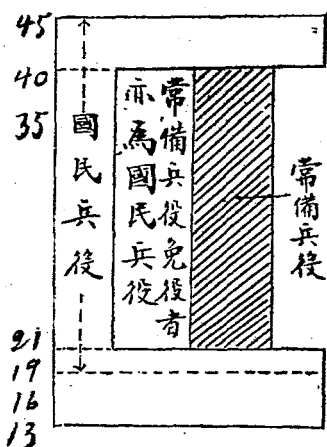 45
40
35
21
19
16
13
國民兵役
常備兵役免役者
亦為國民兵役
常備兵役